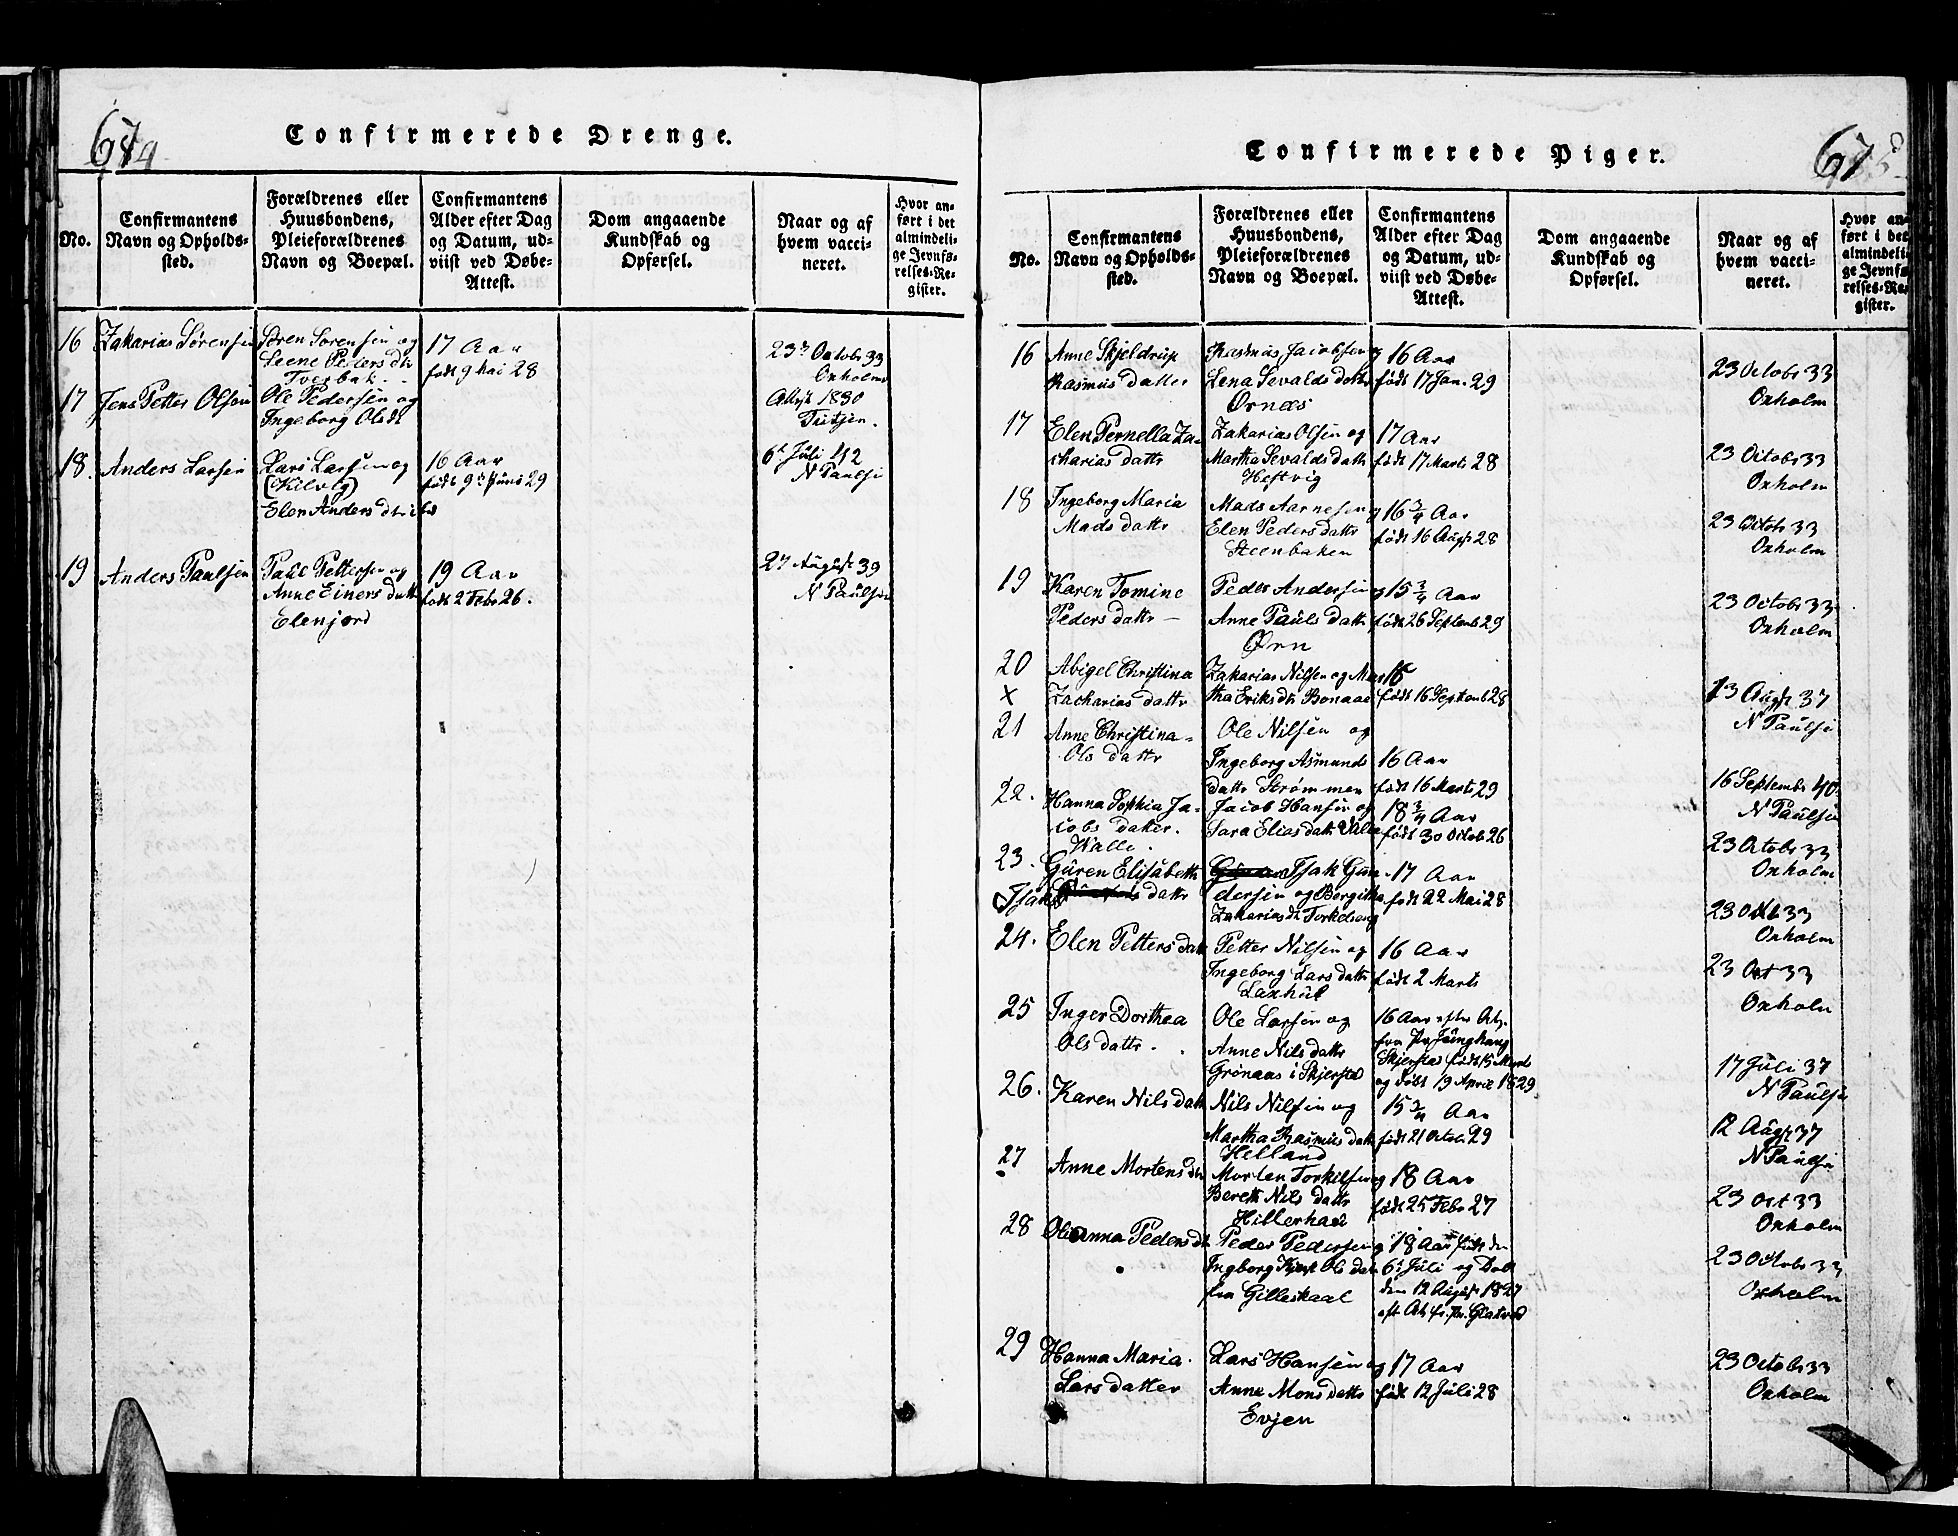 Confirmerede Drenge.
No.
Confirmantens
Navn og Opholds-
sted.
Forældrenes eller
Huusbondens,
Pleieforældrenes
Navn og Boepæl.
Confirmantens
Alder efter Dag
og Datum, ud-
viist ved Døbe-
Attest.
Dom angaaende
Kundskab og
Opførsel.
Naar og af
hvem vacci-
neret.
Hvor an-
ført i det
almindeli-
ge Jevnfø-
relses-Re-
gister.
16 Zakarias Sørensen
Søren Sørensen og
Leene Peders dtr
Tverbak
17 Aar
født 9 Mai 28
23 Octobr 33
Oxholm
17 Jens Petter Olsen
Ole Pedersen og
Ingeborg Olsdt
1830
18. Anders Larsen
Lars Larsen og
(Kilvig)
Elen Anders dtr
16 Aar
født 9 Juni 29
6 Juli 42
N Paulsen
19 Anders Paulsen
Paul Pettersen og
Anne Einers datt
Elenjord
19 Aar
født 2 Febr 26.
27 August 39
N Paulsen
Confirmerede Piger.
67
No.
Confirmantens
Navn og Opholds-
sted.
Forældrenes eller
Huusbondens,
Pleieforældrenes
Navn og Boepæl.
Confirmantens
Alder efter Dag
og Datum, ud-
viist ved Døbe-
Attest.
Dom angaaende
Kundskab og
Opførsel.
Naar og af
hvem vacci-
neret.
Hvor an-
ført i det
almindeli-
ge Jevnfø-
relses-Re-
gister.
16 Anne Skjeldrup
Rasmus datter
Rasmus Jacobsen og
Lena Sevalds dattr
Ørnæs
16 Aar
født 17 Jan. 29
23 Octobr 33
Oxholm
17 Elen Pernella Za-
charias dattr
Zakarias Olsen og
Martha Sevalds dattr
Hestvig
17 Aar
født 17 Marts 28
23 Octobr 33
Oxholm
18 Ingeborg Maria
Mads dattr
Mads Aarnesen og
Elen Peders dattr
Steenbaken
16 3/4 Aar
født 16 Augst 28
23 Octobr 33
Oxholm
19 Karen Tomine
Peders dattr –
Peder Andersen og
Anne Pauls dattr
Ørn
15 3/4 Aar
født 26 Septemb 29
23 Octobr 33
Oxholm
20 Abigel Christina
x Zacharias dattr
Zakarias Nilsen og Mar
tha Eriks dtr Bonaae
16
født 16 Septemb 28
13 Augst 37
N Paulsen
21 Anne Christina
Ols dattr
Ole Nilsen og
Ingeborg Asmunds
dattr Strømmen
16 Aar
født 16 Marts 29
16 Septembr 40
N Paulsen
22. Hanna Sophia Ja-
cobs datter.
Walle.
Jacob Hansen og
Sara Elias dattr Valle
18 3/4 Aar
født 30 Octob 26
23 Octobr 33
Oxholm
23. Guren Elisabeth
Isaks dattr
Isak Gun
dersen og Bergitha
Zakarias dt Torkelseng
17 Aar
født 22 Mai 28
23 Oct 33
Oxholm
24. Elen Petters datt
Petter Nilsen og
Ingeborg Lars dattr
Laxhul
16 Aar
født 2 Marts
23 Oct 33
Oxholm
25 Inger Dorthea
Ols dattr.
Ole Larsen og
Anne Nils dattr
Grønaas i Skjerstad
16 Aar efter Att.
fra Pr Junghans
Skjerstad født 15 Marts
og døbt 19 April 1829
17 Juli 37
N Paulsen
26. Karen Nils datt
Nils Nilsen og
Martha Rasmus datt
Helland
15 3/4 Aar
født 21 Octob. 29
12 Augst 37
N Paulsen
27 Anne Mortens dtr
Morten Torkilsen og
Bereth Nils dattr
Hillerhaae
18 Aar
født 25 Febr 27
23 Oct 33
Oxholm
28 Oleanna Peders dt
Peder Pedersen og
Ingborg Ols datr
fra Gilleskaal
18 Aar født den
6 Juli og Døbt
den 12 August 1827
eft Att. fr. Pr.
23 Octobr 33
Oxholm
29 Hanna Maria
Lars datter
Lars Hansen og
Anne Mons dattr
Evjen
17 Aar
født 12 Juli 28
23 Octobr 33
Oxholm